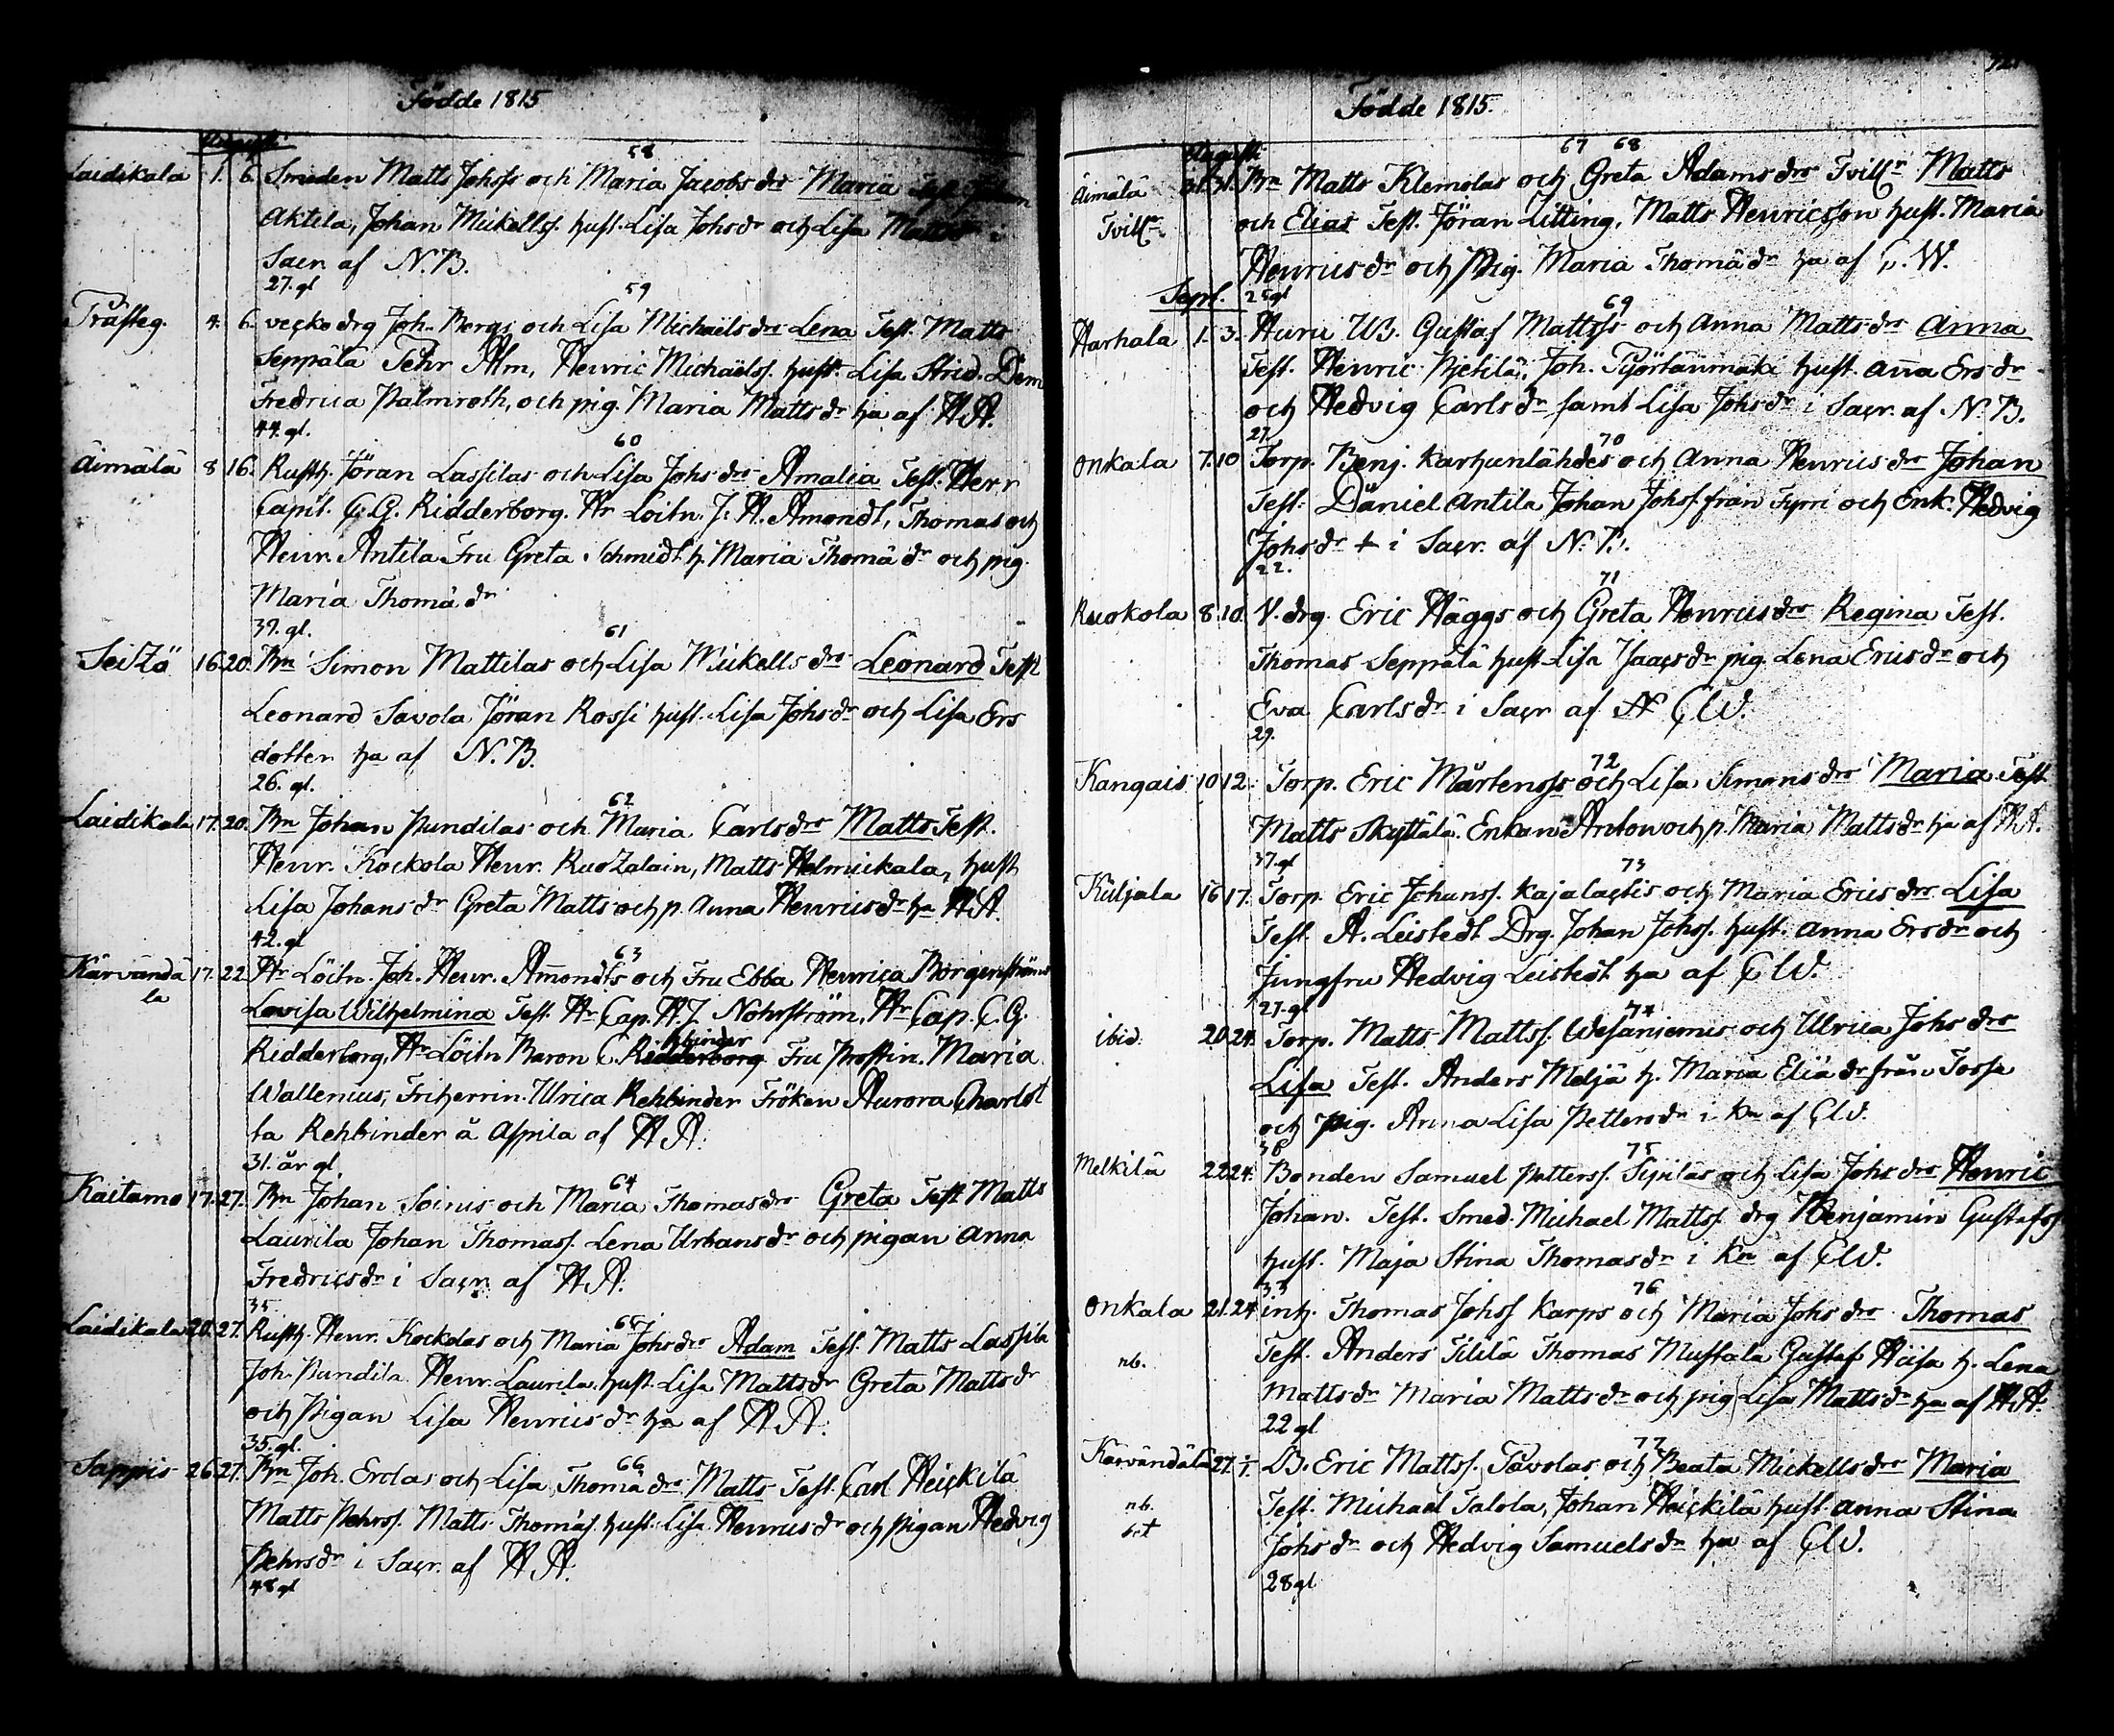 Födde 1815
Augusti
58
Laidikala 1. 6. Smeden Matts Johss och Maria Jacobs drs Maria Test.
Aktila, Johan Mickelss. hust. Lisa Johs dr och Lisa Matts
Sacr. af N. B.
27. gl
59
Prästeg. 4. 6. vecko drg Joh. Bergs och Lisa Michaëls drs Lena Test. Matts
Seppälä Tehr Alm, Henric Michaëlss. hust. Lisa Strid. Dem
Fredrica Palmroth, och pig. Maria Matts dr ha af A. A.
44. gl.
60
Äimälä 8 16. Rusth. Jöran Lassilas och Lisa Johs drs Amalia Test. Herr
Capit. C. G. Ridderborg. Hr Loitn. J. H. Amondt, Thomas och
Henr. Antila Fru Greta Schmidt h. Maria Thomä dr och pig.
Maria Thomä dr
37. gl.
61
Seizö 16 20. Bn Simon Mattilas och Lisa Mickells drs Leonard Test
Leonard Savola Jöran Rossi hust. Lisa Johs dr och Lisa Ers
dotter ha af N. B.
26. gl.
62
Laidikala 17. 20. Bn Johan Pundilas och Maria Carls drs Matts Test.
Henr. Kockola Henr. Matts hust
Lisa Johans dr Greta Matts och p. Anna Henrics dr ha A. A.
42. gl
63
Kärvändä 17. 22. Hr Löitn. Joh. Henr. Amondts och Fru Ebba Henrica Borgenströms
la
Lovisa Wilhelmina Test. Hr Cap. A. J. Nohrström, Hr Cap. C. G.
hbinder
Ridderborg, Hr Löitn Baron C. Ridderborg Fru Prostin. Maria
Wallenius, Friherrin. Ulrica Rehbinder Fröken Aurora Charlot
ta Rehbinder å Aspila af A. A.
31. år gl
64
Kaitamo 17. 27. Bn Johan Soinis och Maria Thomas drs Greta Test. Matts
Laurila Johan Thomass. Lena Urbans dr och pigan Anna
Fredrics dr i Sacr. af A. A.
35.
65
Laidikala 20. 27. Rusth. Henr. Kockolas och Maria Johs drs Adam Test. Matts Lassila
Joh. Pundila Henr. Laurila hust. Lisa Matts dr Greta Matts dr
och Pigan Lisa Henrics dr ha af A. A.
35. gl.
66
Sappis 26. 27. Bn Joh. Erolas och Lisa Thomä drs Matts Test. Carl Heickilä
Matts Pehrss. Matts Thomas. hust. Lisa Henrics dr och Pigan Hedvig
Pehrs dr i Sacr. af A. A.
48 gl
Födde 1815.
Augusti
67 68
Äimälä 31. Bn Matts Klemolas och Greta Adams drs Tvill. Matts
Tvill. och Elias Test. Jöran Litting, Matts Henricsson hust. Maria
Henrics dr och Pig. Maria Thomä dr ha af C. W.
Sept. 25 gl
69
Harhala 1. 3. Huru Gustaf Mattss och Anna Matts drs Anna
Test. Henric Joh. hust. Anna Ers dr
och Hedvig Carls dr samt Lisa Johs dr i Sacr. af N. B.
27
70
Onkala 7. 10 Torp. Benj. Karhunlähdes och Anna Henrics drs Johan
Test. Daniel Antila Johan Johss. från och Enk. Hedvig
Johs dr i Sacr. af N. B.
22.
71
Ruokola 8. 10 V. drg. Eric Häggs och Greta Henrics drs Regina Test.
Thomas Seppälä hust Lisa Isaacs dr pig. Lena Erics dr och
Eva Carls dr i Sacr af CW.
29.
72
Kangais 10 12. Torp. Eric Mårtenss och Lisa Simons drs Maria Test
Matts Skyttälä. Enkan Anton och p. Maria Matts dr ha af A. A.
37. gl
73
Kuljala 16 17. Torp. Eric Johanss. Kajalactis och Maria Erics drs Lisa
Test. A. Leistedt Drg. Johan Johss. hust. Anna Ers dr och
Jungfru Hedvig Leistedt ha af CW.
27. gl
74
ibid. 20 24. Torp. Matts Mattss. Wesaniemis och Ulrica Johs drs
Lisa Test. Anders Meljä h. Maria Eliä dr från
och pig. Anna Lisa Petters dr i Kn af CW.
36
75
Melkilä 22 24. Bonden Samuel Petterss. Sipilas och Lisa Johs drs Henric
Johan. Test. Smed. Michael Mattss. drg Benjamin Gustafss.
hust. Maja Stina Thomas dr i Kn af CW.
33
76
Onkala 21. 24 inh. Thomas Johss Karps och Maria Johs drs Thomas
nb. Test. Anders Tililä Thomas Mustala Gustaf h. Lena
Matts dr Maria Matts dr och pig Lisa Matts dr ha af A. A.
22 gl
77
Kärvändälä 27. 1/1. B. Eric Mattss. Tavolas och Beata Mickells drs Maria
nb. Test. Michael Talola, Johan Heickilä hust. Anna Stina
Johs dr och Hedvig Samuels dr ha af CW.
28 gl